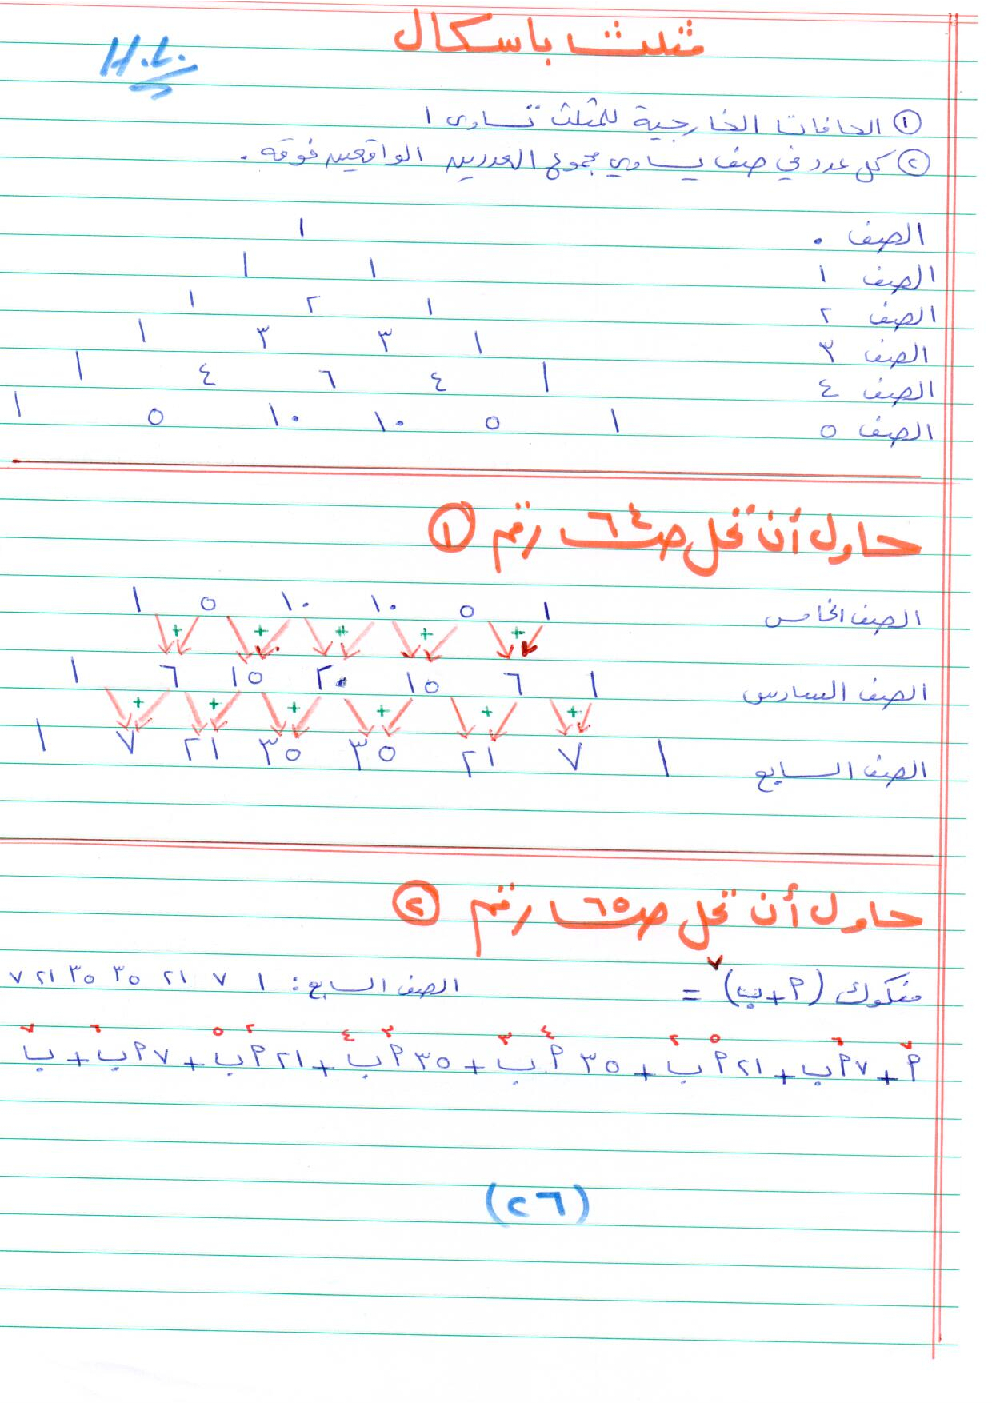 مثلث باسكال
H.L.
① الحافات الخارجية للمثلث تساوي ١
② كل عدد في صف يساوي مجموع العددين الواقعين فوقه .
الصف ٠ ١
الصف ١ ١ ١
الصف ٢ ١ ٢ ١
الصف ٣ ١ ٣ ٣ ١
الصف ٤ ١ ٤ ٦ ٤ ١
الصف ٥ ١ ٥ ١٠ ١٠ ٥ ١
حاول أن تحل صـ٦٤ رقم ①
الصف الخامس ١ ٥ ١٠ ١٠ ٥ ١
+ + + + +
الصف السادس ١ ٦ ١٥ ٢٠ ١٥ ٦ ١
+ + + + + +
الصف السابع ١ ٧ ٢١ ٣٥ ٣٥ ٢١ ٧ ١
حاول أن تحل صـ٦٥ رقم ②
مفكوك (٢+ب)^٧ = الصف السابع: ١ ٧ ٢١ ٣٥ ٣٥ ٢١ ٧
٢^٧ + ٧ ٢^٦ ب + ٢١ ٢^٥ ب^٢ + ٣٥ ٢^٤ ب^٣ + ٣٥ ٢^٣ ب^٤ + ٢١ ٢^٢ ب^٥ + ٧ ٢ ب^٦ + ب^٧
(٢٦)